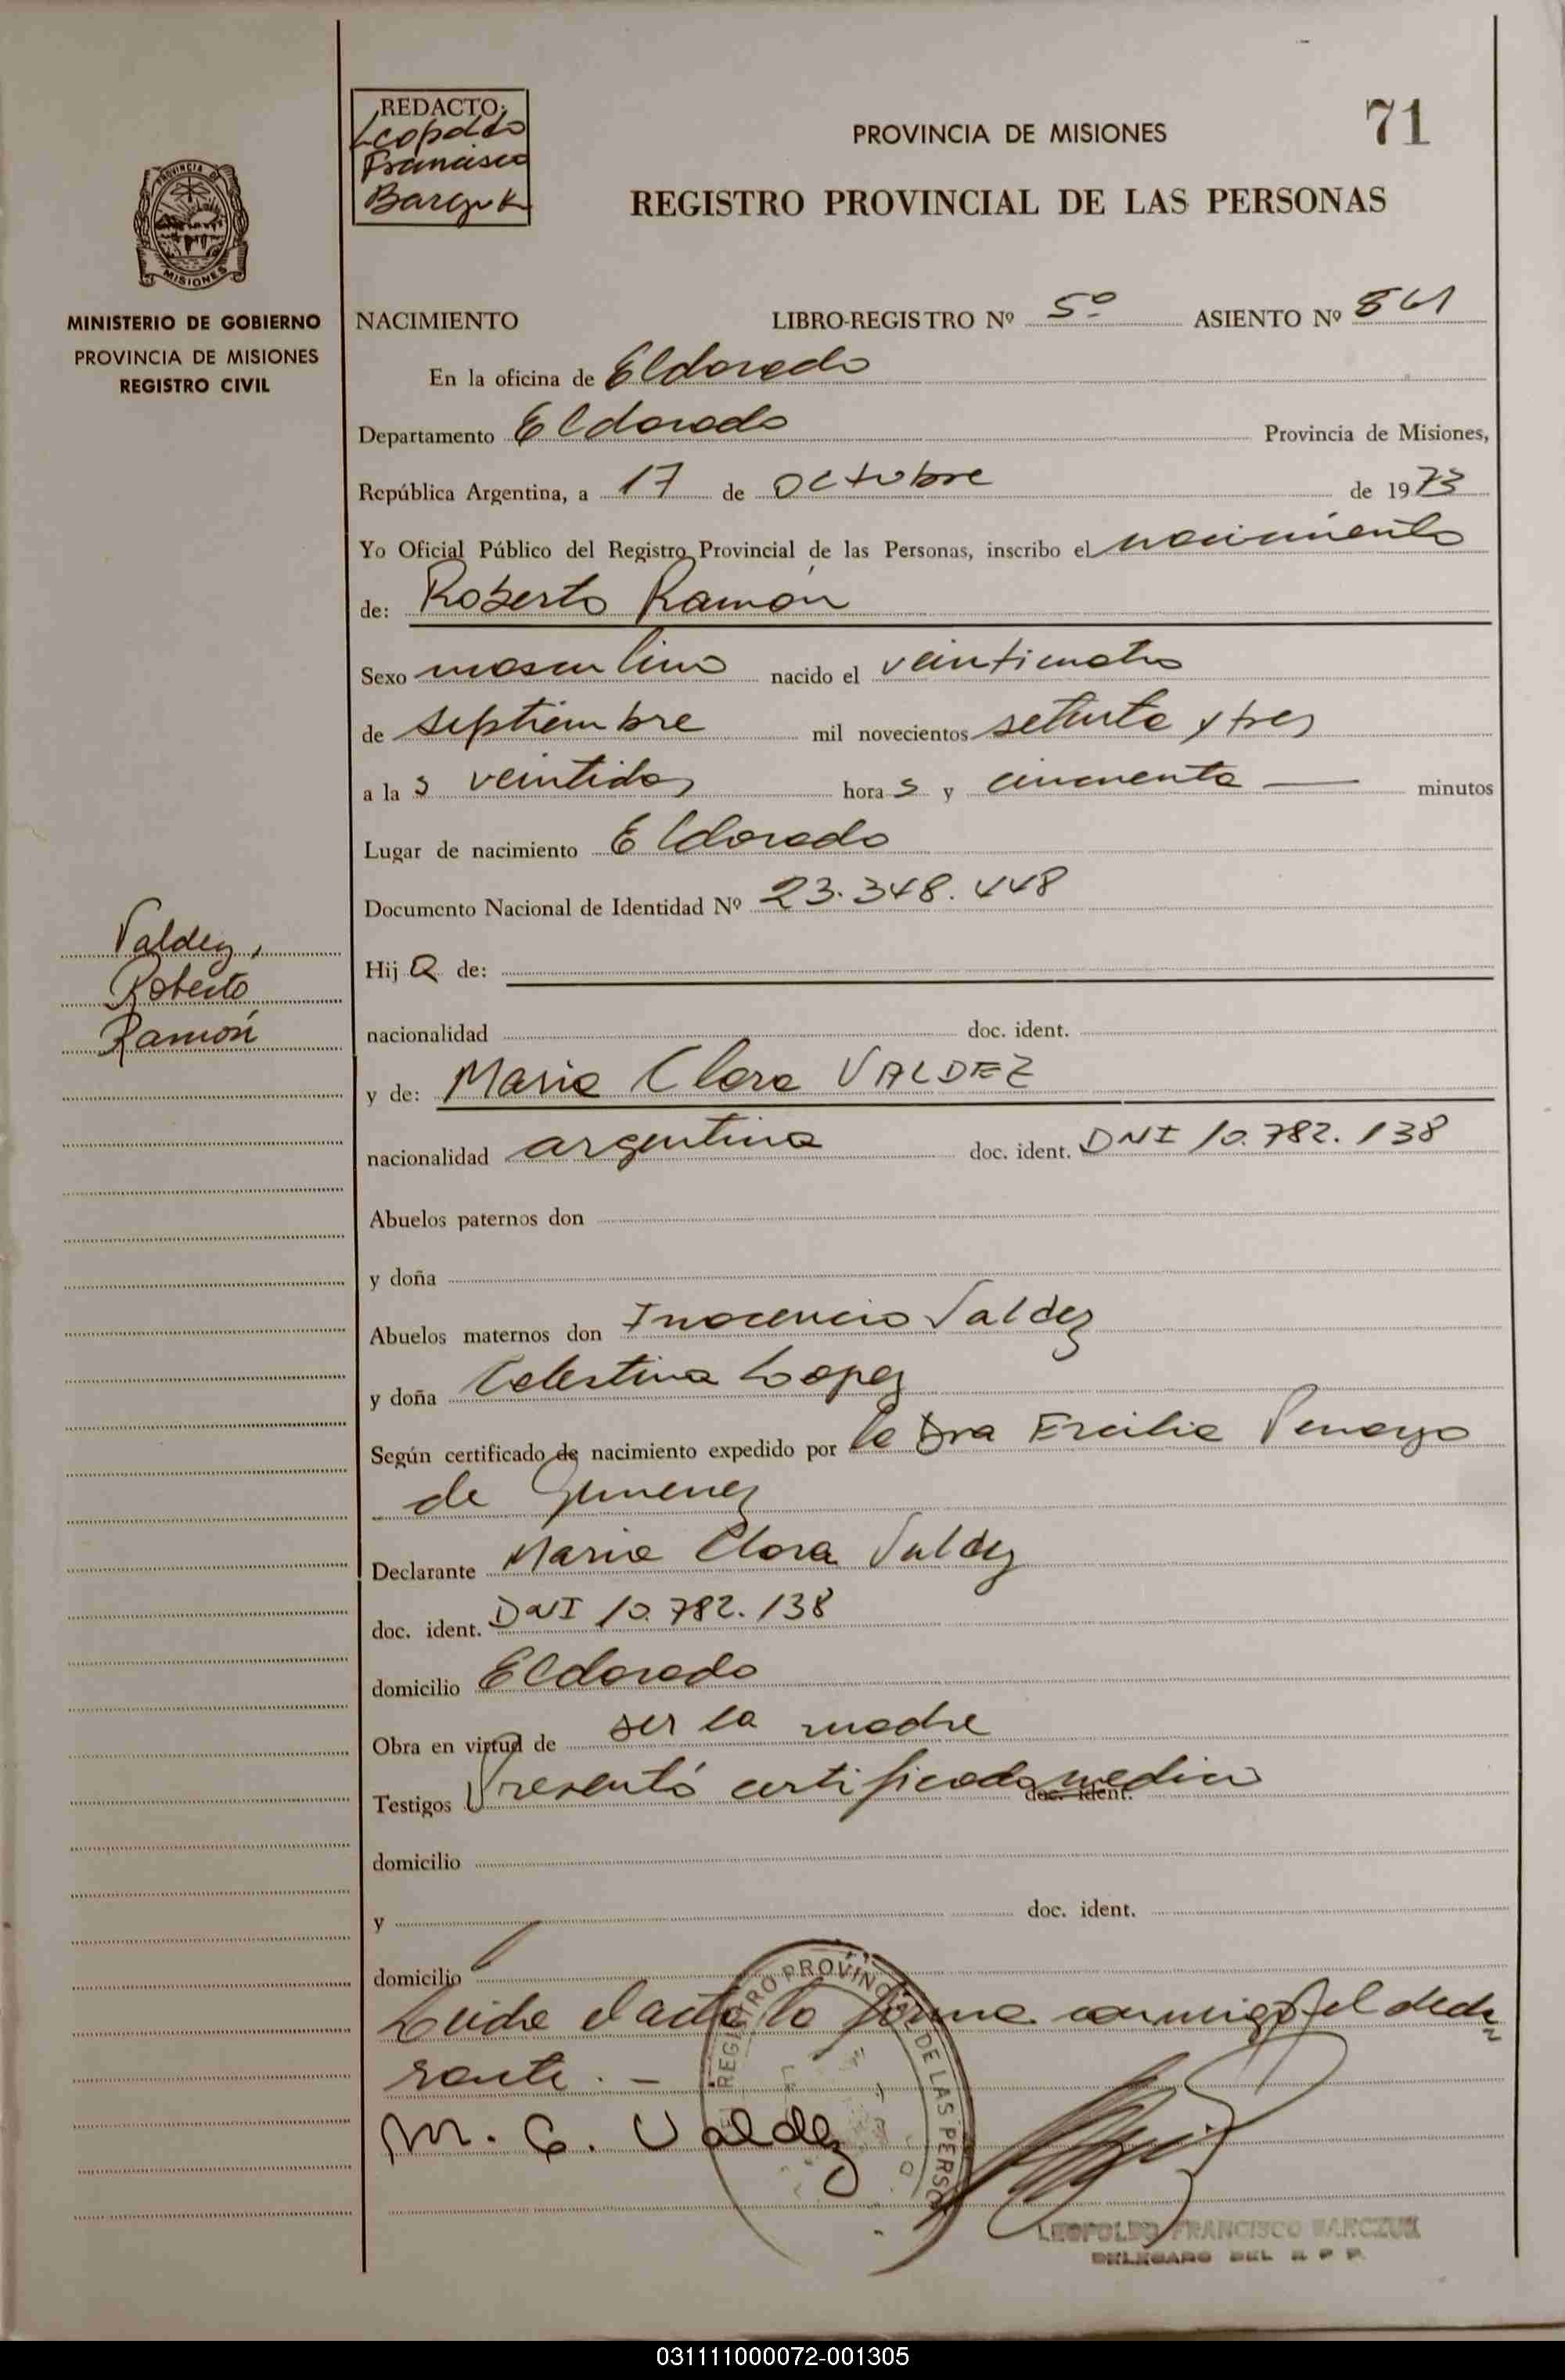 REDACTO:
Leopoldo
Francisco
Barczuk
PROVINCIA DE MISIONES
71
REGISTRO PROVINCIAL DE LAS PERSONAS
PROVINCIA DE
MISIONES
MINISTERIO DE GOBIERNO
PROVINCIA DE MISIONES
REGISTRO CIVIL
NACIMIENTO LIBRO-REGISTRO Nº 5º ASIENTO Nº 861
En la oficina de Eldorado
Departamento Eldorado Provincia de Misiones,
República Argentina, a 17 de Octubre de 1973
Yo Oficial Público del Registro Provincial de las Personas, inscribo el nacimiento
de: Roberto Ramón
Sexo masculino nacido el veinticuatro
de septiembre mil novecientos setenta y tres
a las veintidos horas y cincuenta — minutos
Lugar de nacimiento Eldorado
Documento Nacional de Identidad Nº 23.348.448
Valdez,
Roberto
Ramón
Hijo de:
nacionalidad doc. ident.
y de: Maria Clara VALDEZ
nacionalidad argentina doc. ident. DNI 10.782.138
Abuelos paternos don
y doña
Abuelos maternos don Inocencio Valdez
y doña Celestina Lopez
Según certificado de nacimiento expedido por la Dra Ercilia Penayo
de Gimenez
Declarante Maria Clara Valdez
doc. ident. DNI 10.782.138
domicilio Eldorado
Obra en virtud de ser la madre
Testigos Presentó certificado medico doc. ident.
domicilio
y doc. ident.
domicilio
Leida el acta la firma conmigo el decla
rante. —
M. C. Valdez
REGISTRO PROVINCIAL DE LAS PERSO
LEOPOLDO FRANCISCO BARCZUK
DELEGADO DEL R P P.
031111000072-001305